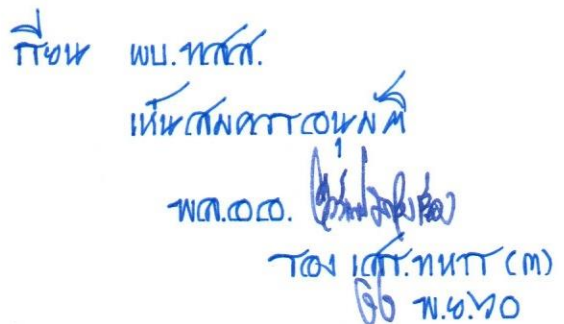 เรียน ผบ.ทสส.
เห็นสมควรอนุมัติ
พล.อ.อ.
รอง เสธ.ทหาร (๓)
พ.ย.๖๐